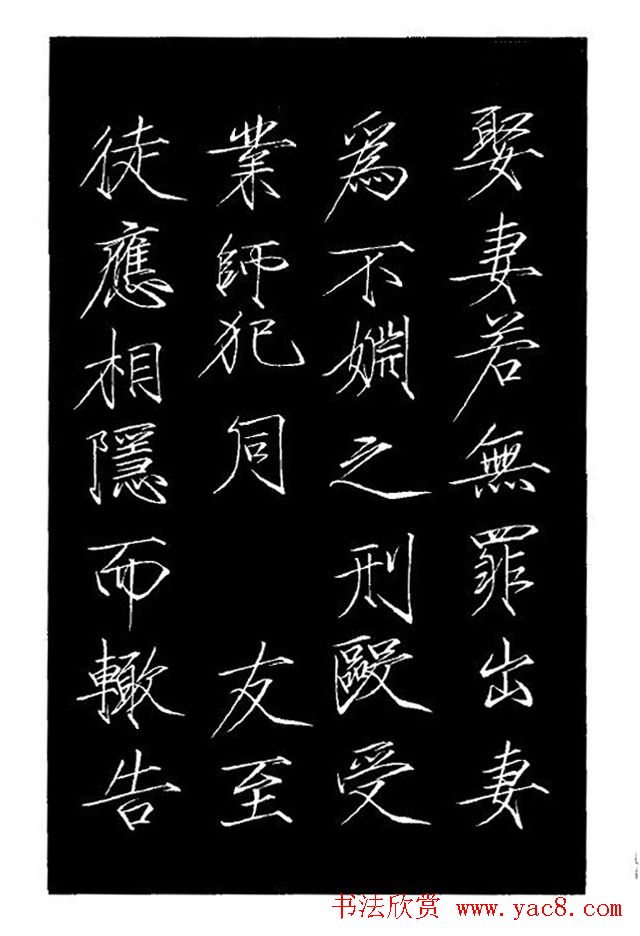 娶妻若無罪出妻
爲不嫻之刑毆受
業師犯同 友至
徒應相隱而轍告
书法欣赏 www.yac8.com